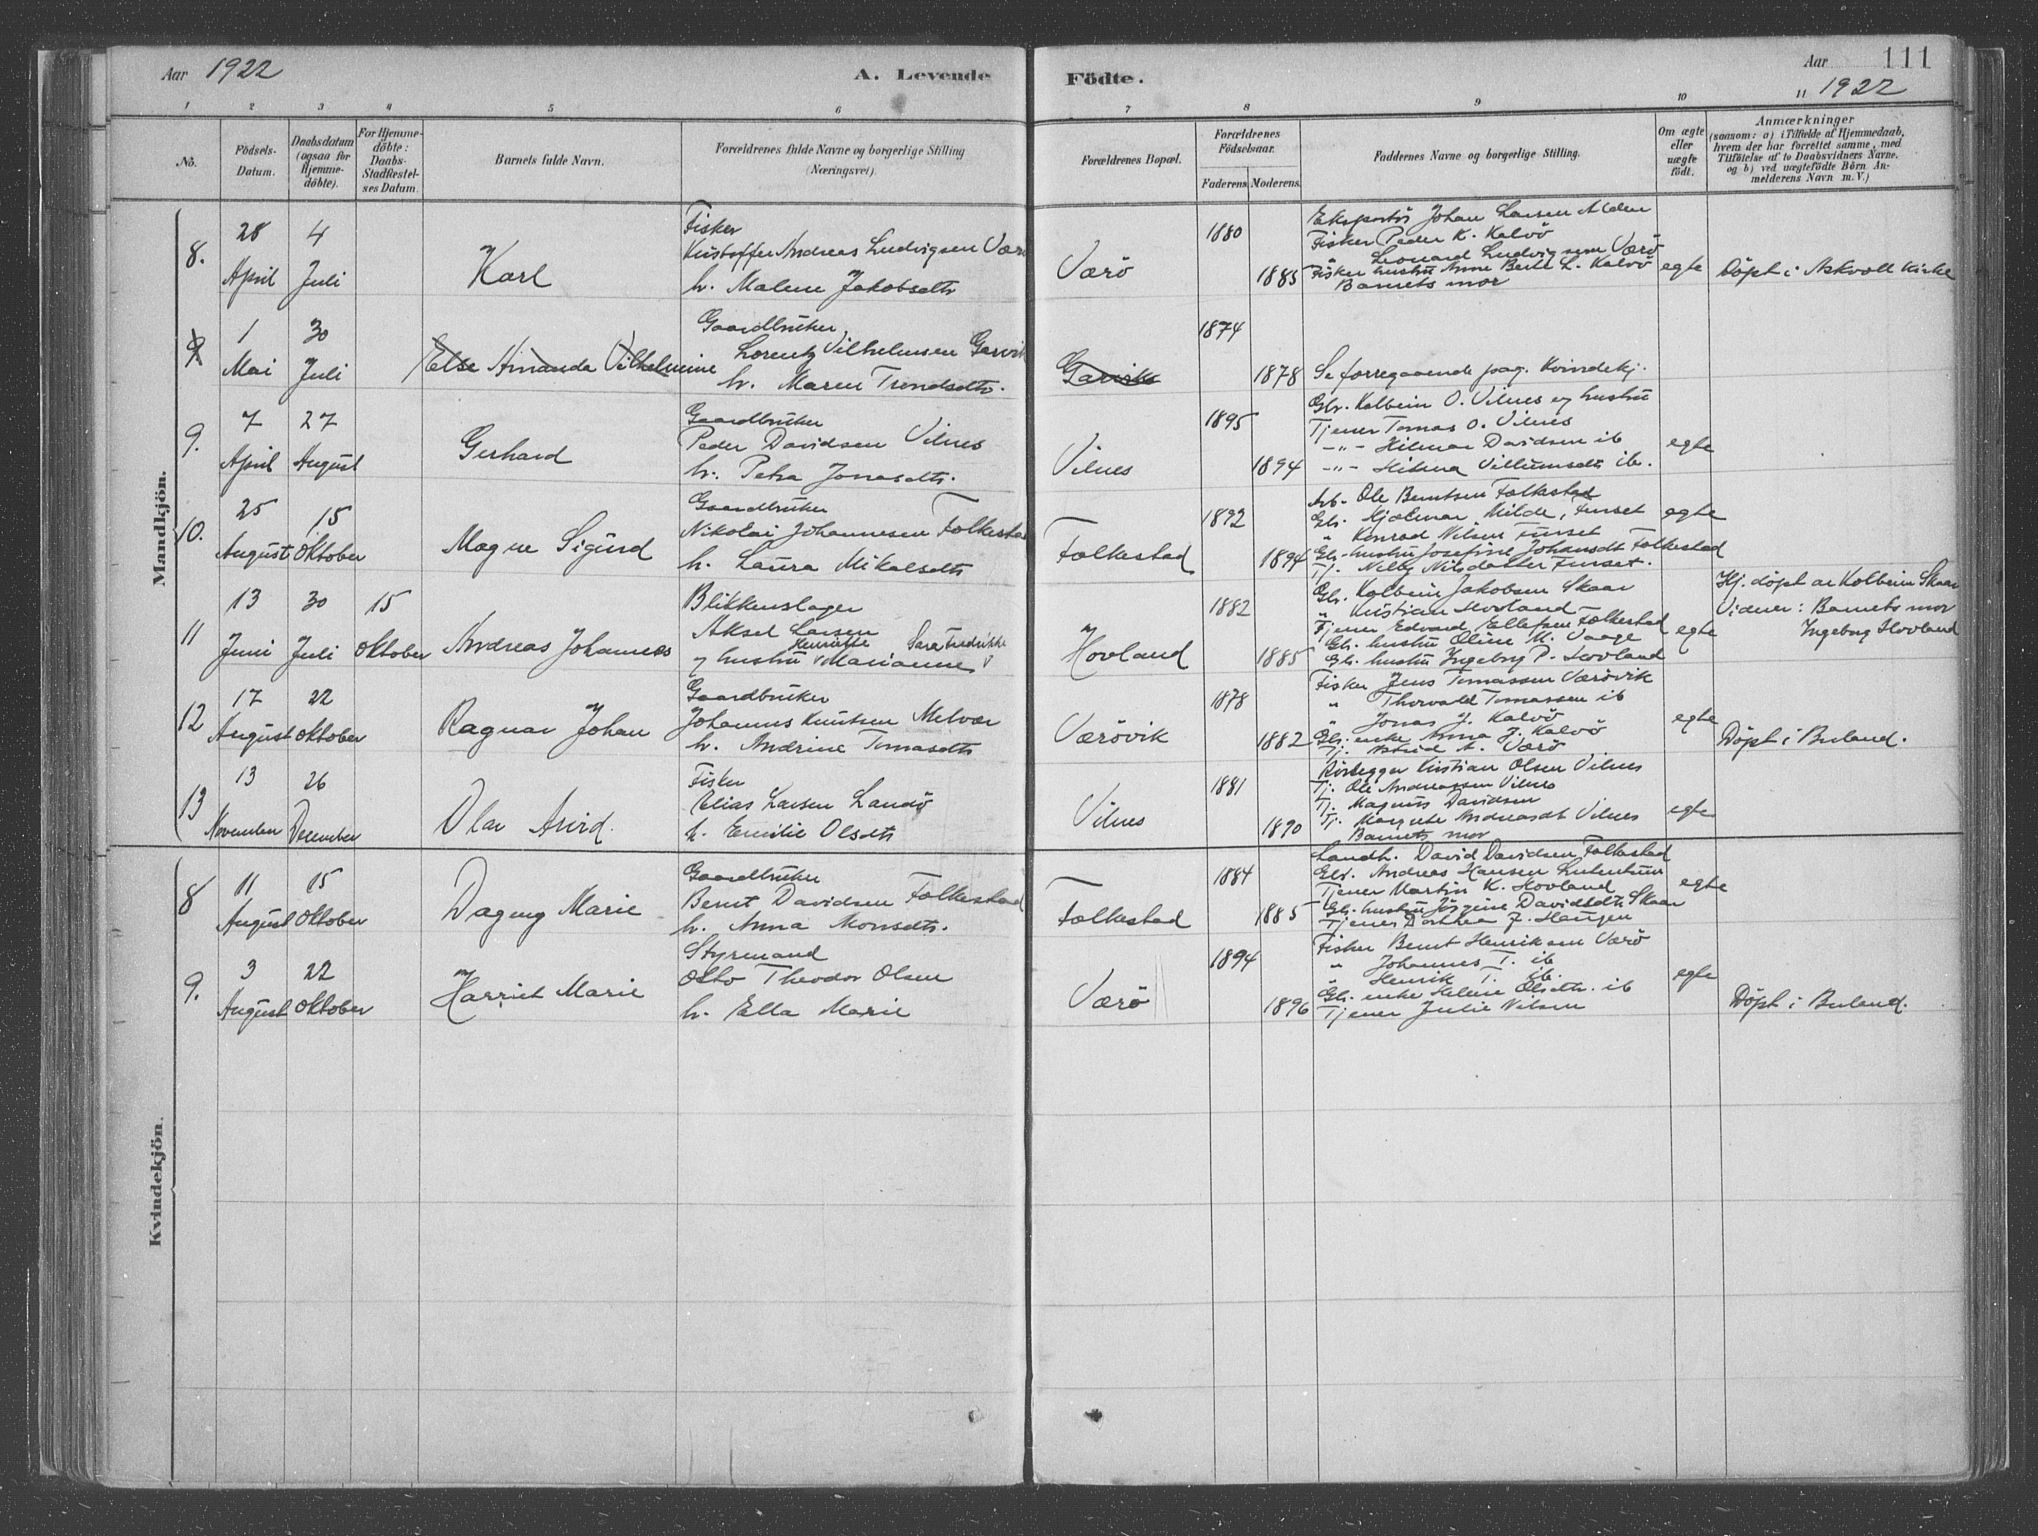 Aar 1922
A. Levende
Födte.
Aar 1922
111
1 2 3 4 5 6 7 8 9 10 11
No.
Födsels-Datum.
Daabsdatum (ogsaa for Hjemme-döbte).
For Hjemme-döbte: Daabs-Stadfæstel-ses Datum.
Barnets fulde Navn.
Forældrenes fulde Navne og borgerlige Stilling (Næringsvei).
Forældrenes Bopæl.
Forældrenes Födselsaar.
Faderens. Moderens.
Faddernes Navne og borgerlige Stilling.
Om ægte eller uægte födt.
Anmærkninger
(saasom: a) i Tilfælde af Hjemmedaab, hvem der har forrettet samme, med Tilföielse af to Daabsvidners Navne. og b) ved uægtefödte Börn An-melderens Navn m. V.)
Mandkjön.
8.
28 April
4 Juli
Karl
Fisker
Kristoffer Andreas Ludvigsen Værö
h. Malene Jakobsdtr
Værö
1880
1885
Eksportör Johan Larsen Alden
Fisker Peder K. Kalvö
" Leonard Ludvigsen Værö
Fisker hustru Anne Berte L. Kalvö
Barnets mor
egte
Döpt i Askvoll Kirke
1 Mai
30 Juli
Else Amanda Vilhelmine
Gaardbruker
Lorentz Vilhelmsen Garvik
h. Maren Trondsdtr.
Garvik
1874
1878
Se foregaaende pag. Kvindekj.
9.
7 April
27 August
Gerhard
Gaardbruker
Peder Davidsen Vilnes
h. Petra Jonasdtr.
Vilnes
1895
1894
Gbr. Kolbein O. Vilnes og hustru
Tjener Tomas O. Vilnes
-"- Hilmar Davidsen ib
-"- Hilma Villumsdtr ib.
egte
10.
25 August
15 Oktober
Magne Sigurd
Gaardbruker
Nikolai Johannesen Folkestad
h. Laura Mikalsdtr
Folkestad
1892
1894
Arb. Ole Berntsen Folkestad
Gbr. Hjalmar Milde, Funset
" Konrad Nilsen Funset
Gbr. hustru Josefine Johansdt Folkestad
Tj. Nelly Nilsdatter Funset.
egte
11
13 Juni
30 Juli
15 Oktober
Andreas Johannes
Blikkenslager
Aksel Larsen
Henriette Sara Fredrikke
og hustru Marianne
Hovland
1882
1885
Gbr. Kolbein Jakobsen Skaar
" Kristian Hovland
Tjener Edvard Ellefsen Folkestad
Gbr. hustru Oline M. Vaage
Gbr. hustru Ingeborg P. Hovland
egte
Hj. döpt av Kolbein Skaar
Vidner: Barnets mor
Ingeborg Hovland
12
17 August
22 Oktober
Ragnar Johan
Gaardbruker
Johannes Knutsen Melvær
h. Andrine Tomasdtr
Værövik
1878
1882
Fisker Jens Tomassen Værövik
" Thorvald Tomassen ib
" Jonas J. Kalvö
Gbr. enke Anna J. Kalvö
Tj. Astrid A. Værö
egte
Döpt i Buland.
13
13 November
26 December
Olav Arvid.
Fisker
Elias Larsen Landö
h. Emilie Olsdtr
Vilnes
1881
1890
Rörlegger Kristian Olsen Vilnes
Tj. Ole Andreassen Vilnes
Tj. Magnus Davidsen
Tj. Margrete Andreasdt Vilnes
Barnets mor
egte
Kvindekjön.
8
11 August
15 Oktober
Dagny Marie
Gaardbruker
Bernt Davidsen Folkestad
h. Anna Monsdtr.
Folkestad
1884
1885
Landh. David Davidsen Folkestad
Gbr. Andreas Hansen
Tjener Martin K. Hovland
Gbr. hustru Jörgine Davidsdtr Skaar
Tjener Dorthea J. Haugen
egte
9.
3 August
22 Oktober
Harriet Marie
Styrmand
Otto Theodor Olsen
h. Ella Marie
Værö
1894
1896
Fisker Bernt Henriksen Værö
" Johannes T. ib
" Henrik T. ib.
Gbr. enke Helene Olsdtr. ib
Tjener Julie Nilsen
egte
Döpt i Buland.